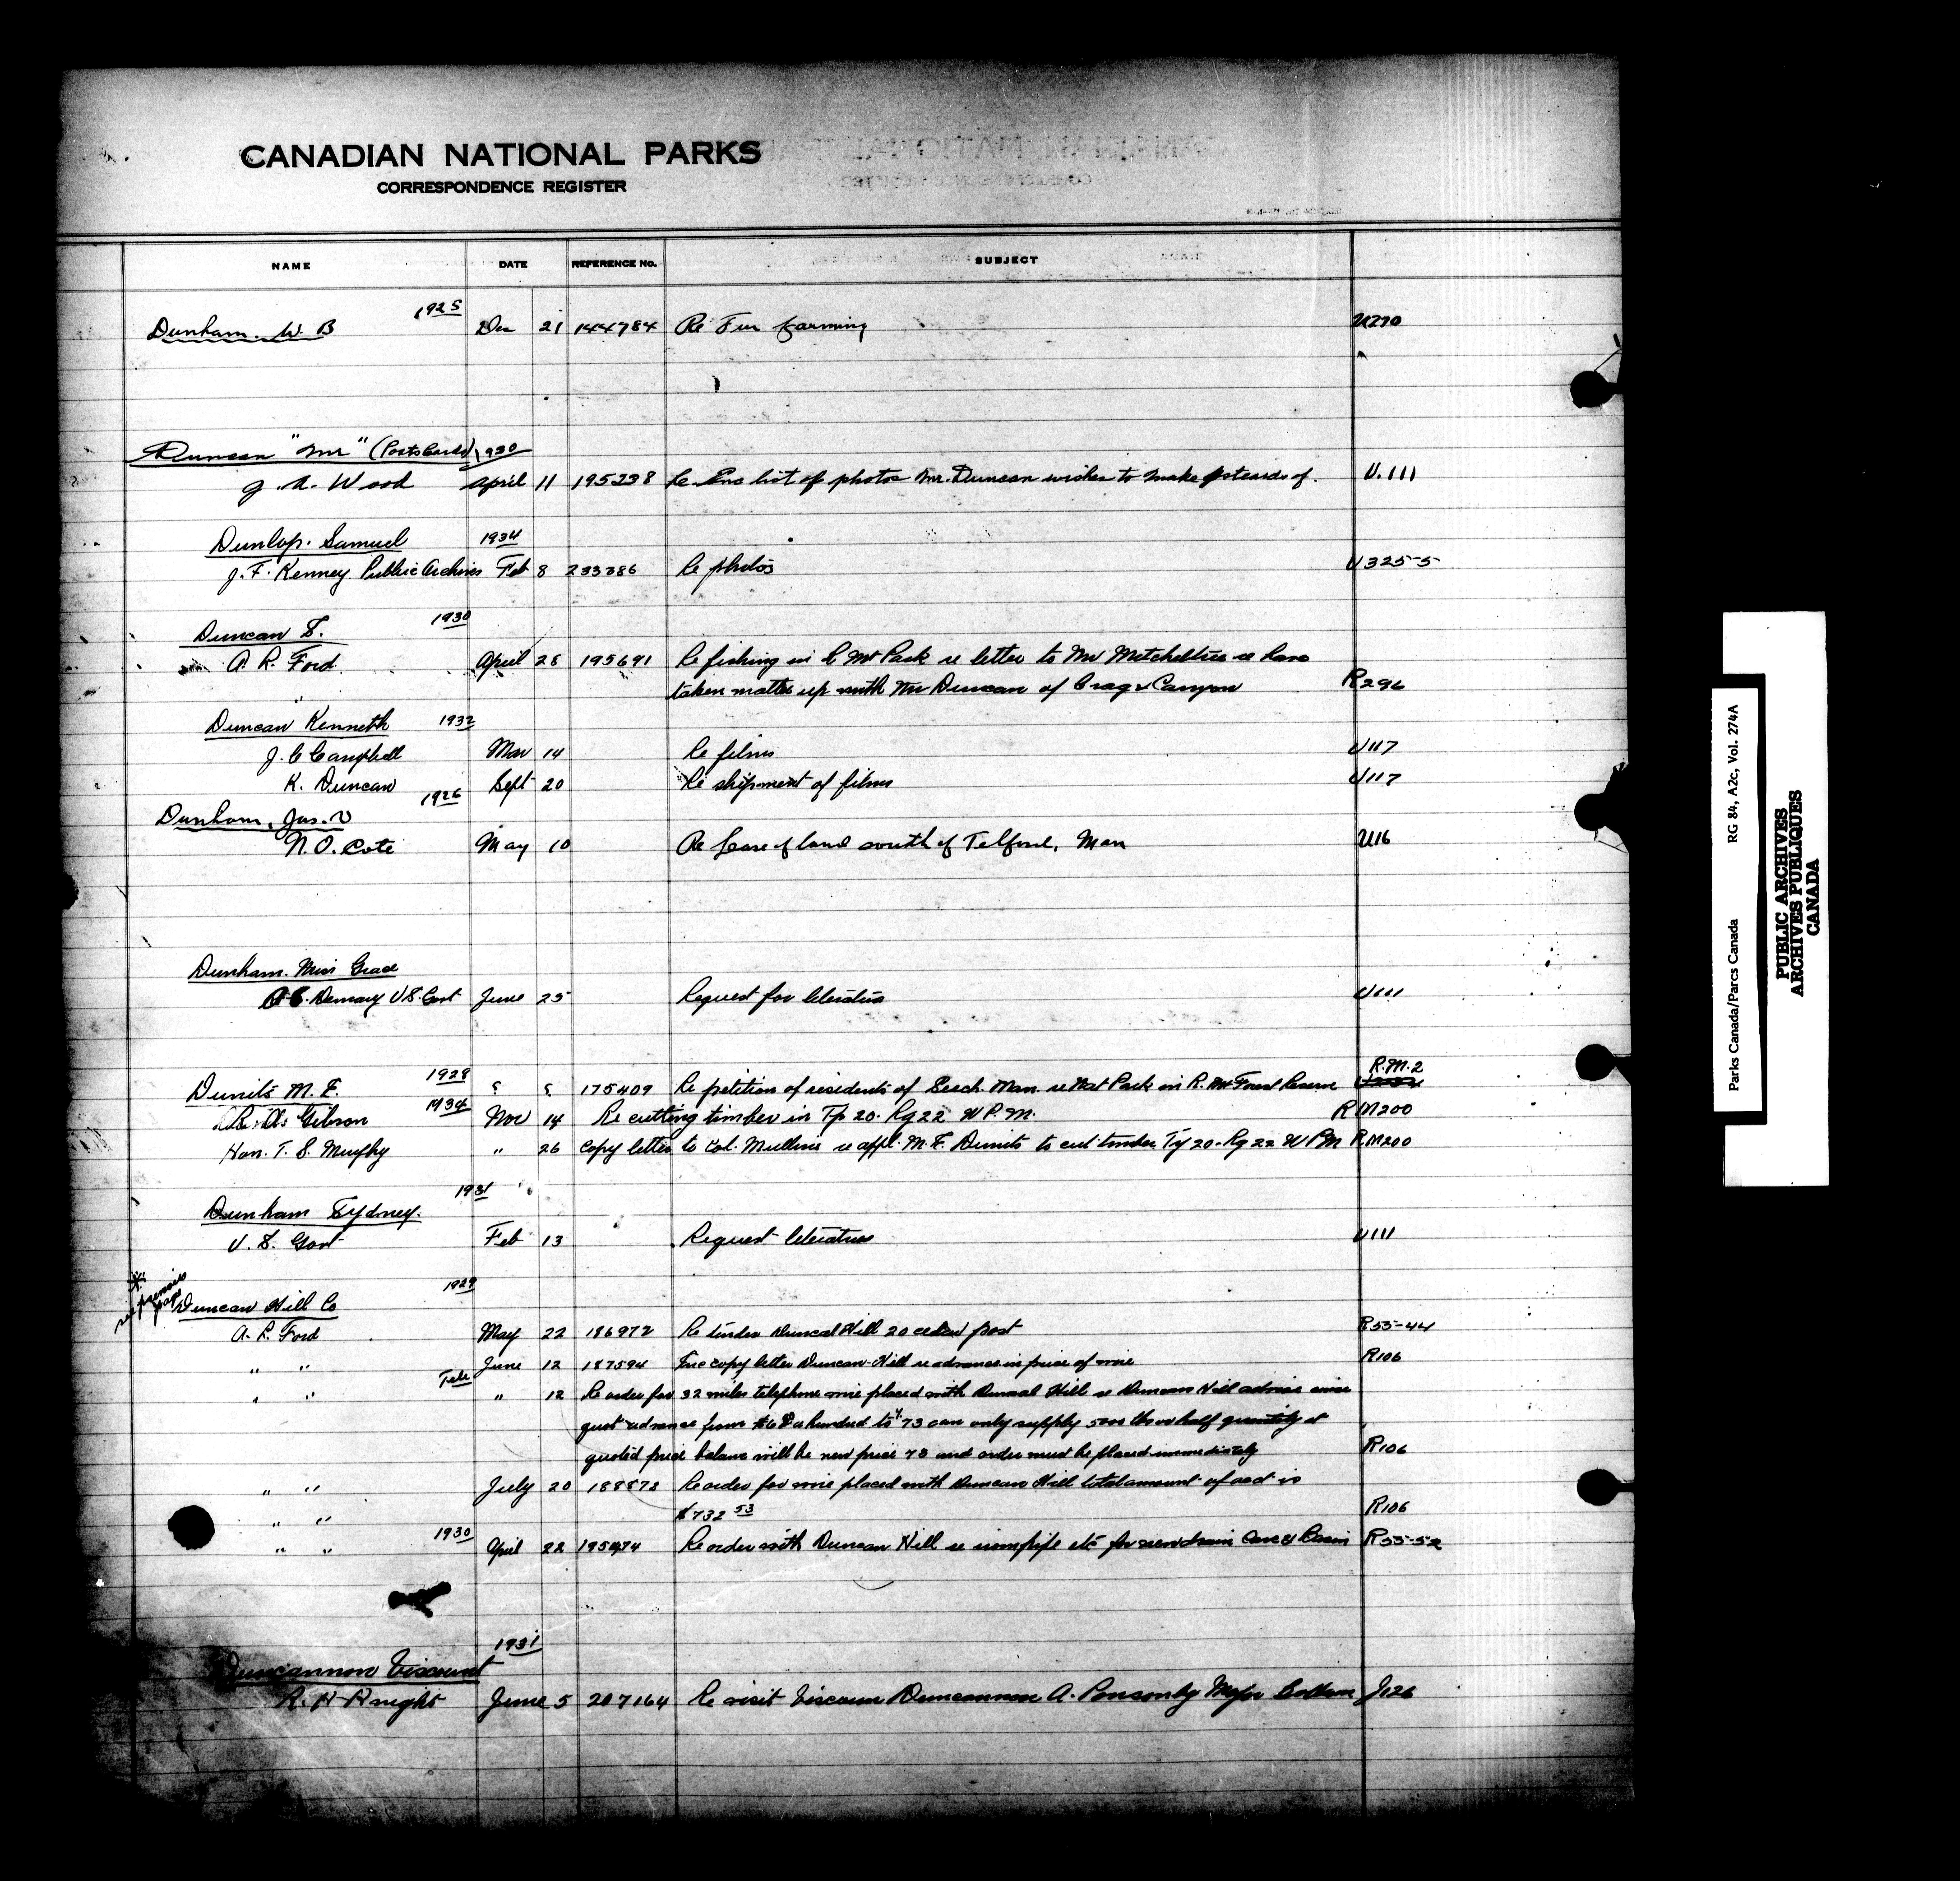 CANADIAN NATIONAL PARKS
CORRESPONDENCE REGISTER
NAME DATE REFERENCE No. SUBJECT
1925
Dunham. W. B Dec 21 144784 Re Fur farming U270
Duncan "Mr" (Postcards) 1930
J. A. Wood April 11 195238 Re Enc list of photos Mr. Duncan wishes to make postcards of. U.111
Dunlop. Samuel 1934
J. F. Kenney Public Archives Feb 8 233386 Re photos U325-5
Duncan S. 1930
A. R. Ford April 28 195691 Re fishing in R Mt Park re letter to Mr Mitcheltree re have
taken matter up with Mr Duncan of Crag & Canyon R296
Duncan Kenneth 1932
J. C Campbell Mar 14 Re films U117
K. Duncan Sept 20 Re shipment of films U117
1926
Dunham, Jas. V
N. O. Cote May 10 Re lease of land south of Telford, Man U16
Dunham. Miss Grace
Demary U S. Govt June 25 Request for literature U111
R.M.2
Dunits M. F. 1928 175409 Re petition of residents of Man. re Nat Park in R. Mt Forest Reserve
R. A. Gibson 1934 Nov 14 Re cutting timber in Tp 20. Rg 22 W P. M. RM200
Hon. T. G. Murphy " 26 copy letter to Col. Mullins re appl. M. F. Dunits to cut timber Tp 20-Rg 22 W P M RM200
1931
Dunham Sydney.
U. S. Govt Feb 13 Request literature U111
* see previous page
1929
Duncan Hill Co
A. R. Ford May 22 186972 Re tender Duncal Hill 20 cedar post R55-44
" " June 12 187594 Enc copy letter Duncan-Hill re advance in price of wire R106
" " Tele " 12 Re order for 32 miles telephone wire placed with Duncal Hill re Duncan Hill advise wire
advance from a hundred to $73 can only supply half quantity at
quoted price balance will be new price 73 and order must be placed immediately R106
" " July 20 188872 Re order for wire placed with Duncan Hill total amount of acct is
" " $732 53 R106
" " 1930 April 22 195474 Re order with Duncan Hill re etc for Cave & Basin R55-52
1931
Duncannon Viscount
R. H Knight June 5 207164 Re visit Viscoun Duncannon A. Ponsonby Major J126
Parks Canada/Parcs Canada RG 84, A2c, Vol. 274A
PUBLIC ARCHIVES
ARCHIVES PUBLIQUES
CANADA